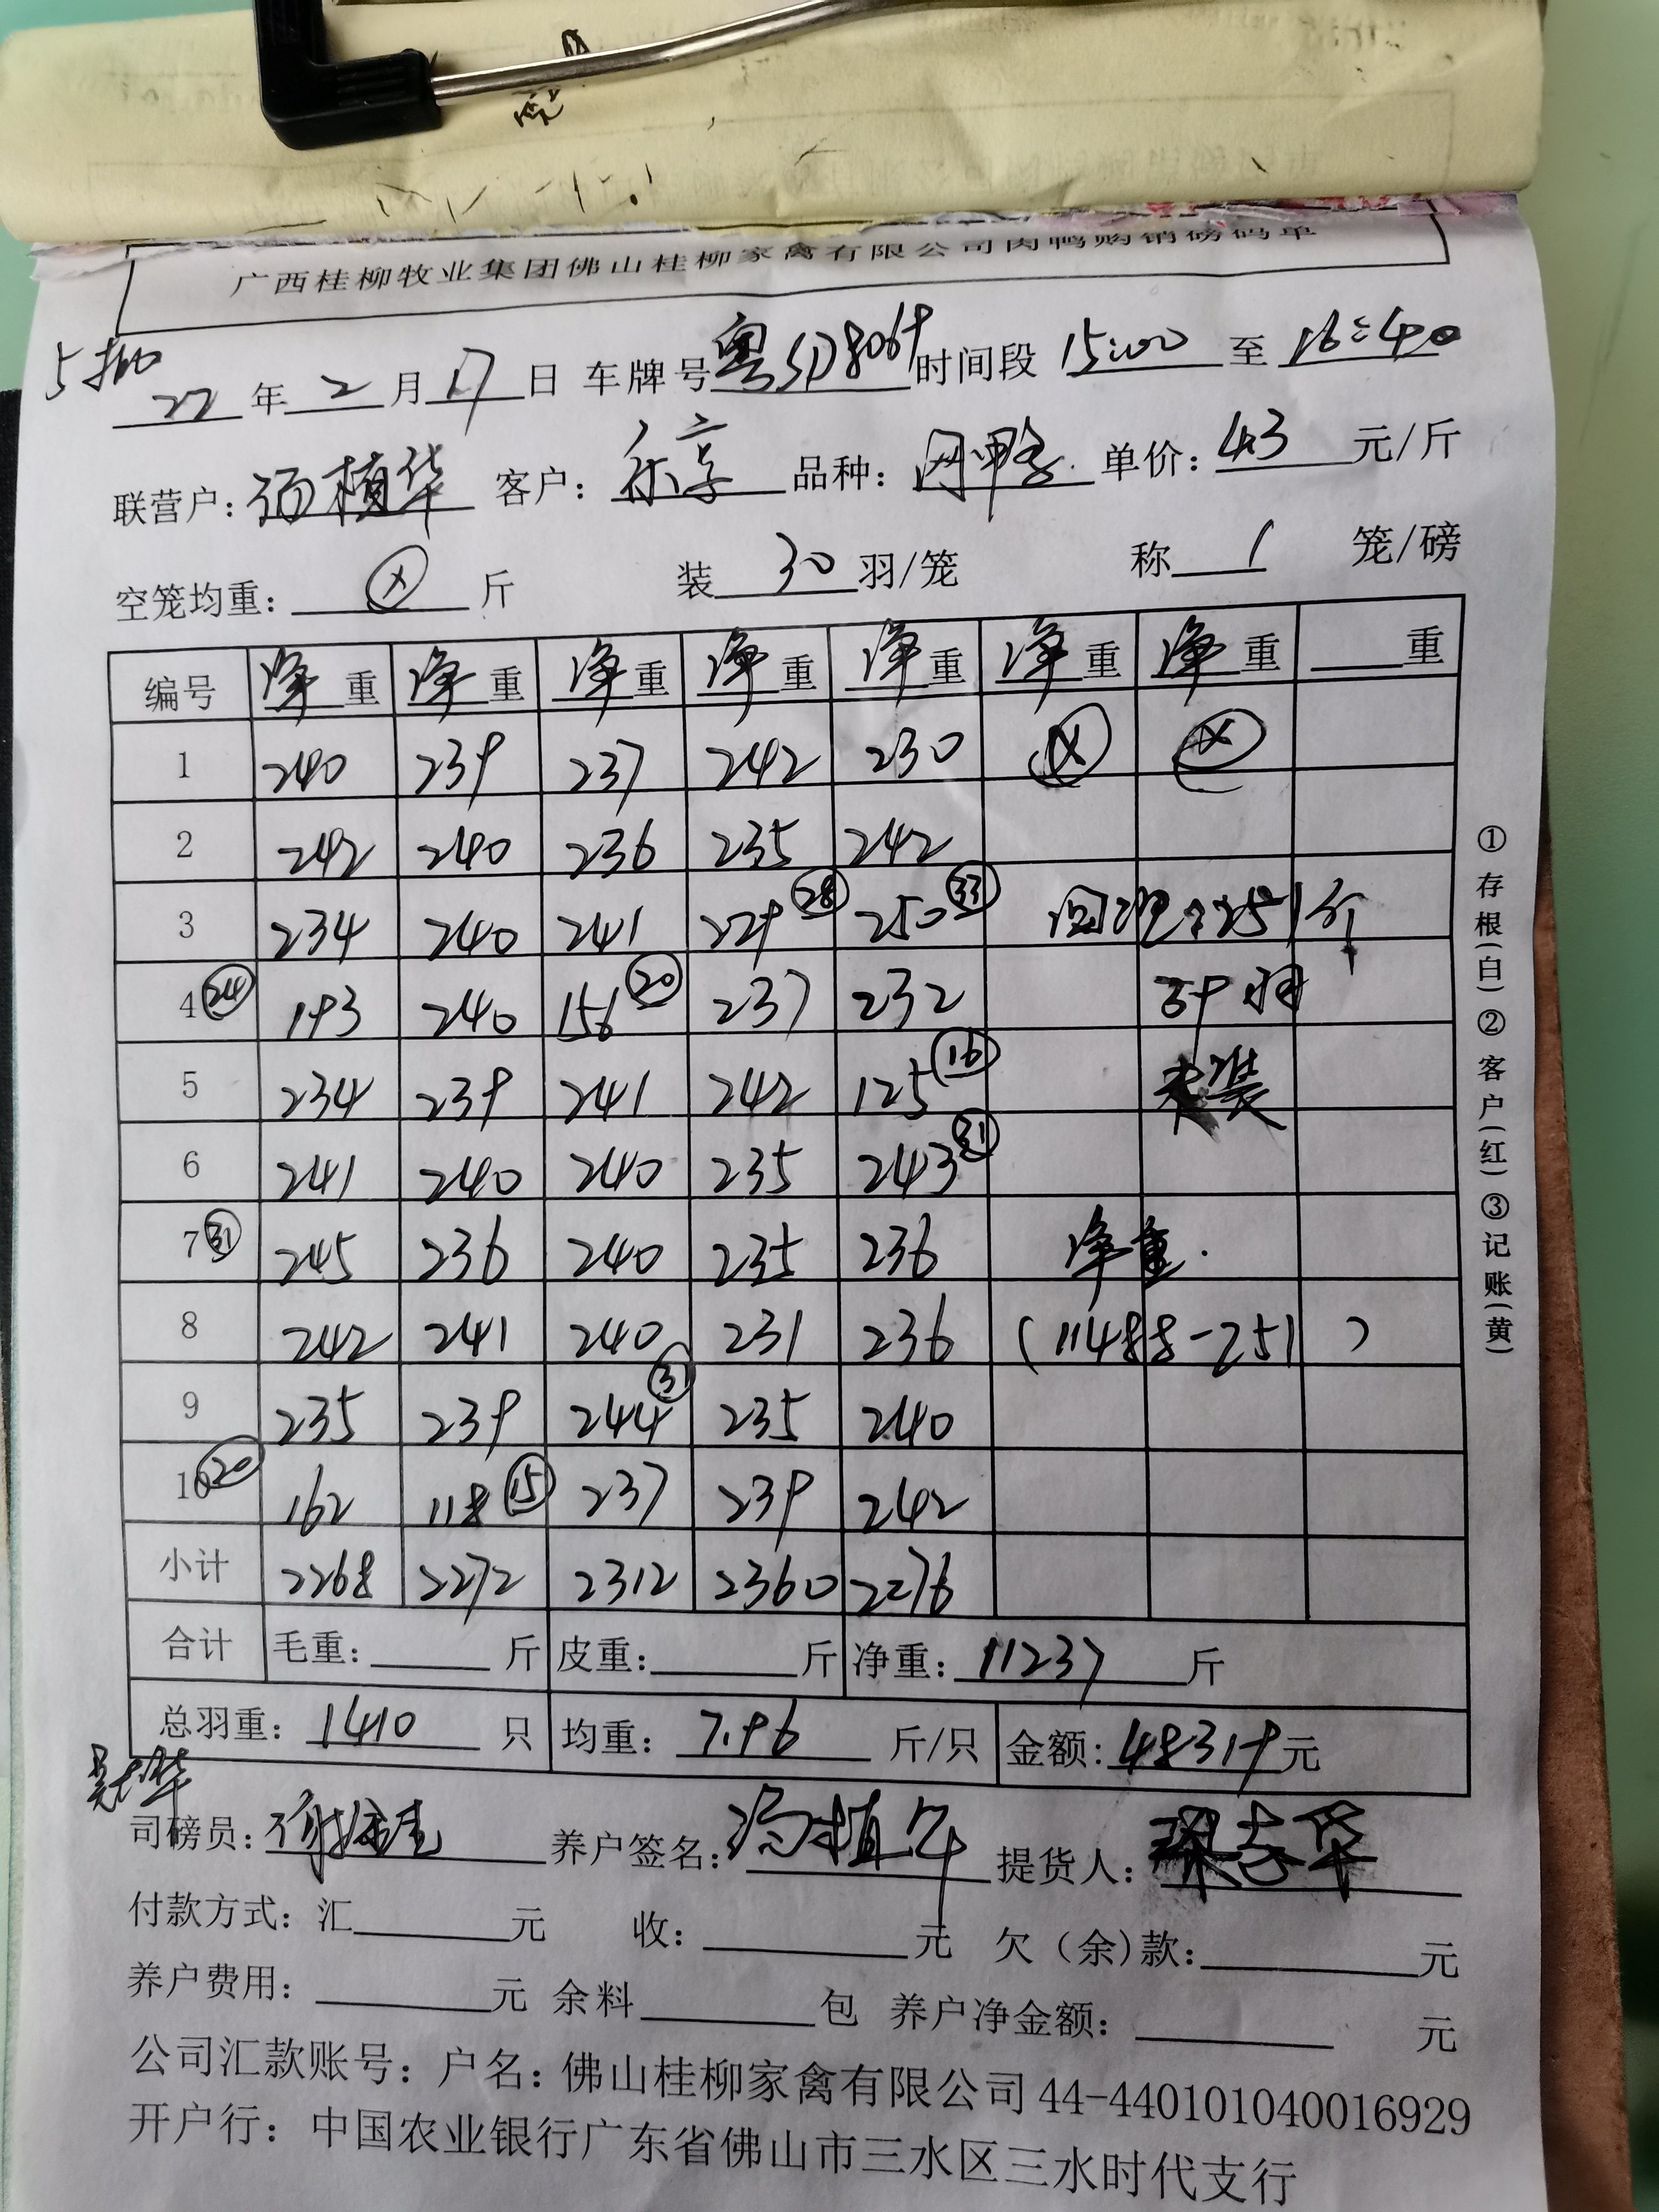 广西桂柳牧业集团佛山桂柳家禽有限公司肉鸭购销磅码单
22 年 2 月 17 日 车牌号 时间段 15:00 至 16:40
联营户: 汤植华 客户: 乐享 品种: 单价: 4.3 元/斤
空笼均重: X 斤 装 30 羽/笼 称 1 笼/磅
编号 净重 净重 净重 净重 净重 净重 净重 重
1 240 239 237 242 230 X X
2 242 240 236 235 242
3 234 240 241 229 28 250 33 251斤
4 24 193 240 156 20 237 232 39羽
5 234 239 241 242 125 16 未装
6 241 240 240 235 243 31
7 31 245 236 240 235 236 净重.
8 242 241 240 231 236 (11488-251)
9 235 239 244 31 235 240
10 20 162 118 15 237 239 242
小计 2268 2272 2312 2360 2276
合计 毛重: 斤 皮重: 斤 净重: 11237 斤
总羽重: 1410 只 均重: 7.96 斤/只 金额: 48319元
司磅员: 养户签名: 汤植华 提货人: 梁志华
付款方式: 汇 元 收: 元 欠(余)款: 元
养户费用: 元 余料 包 养户净金额: 元
公司汇款账号: 户名: 佛山桂柳家禽有限公司 44-440101040016929
开户行: 中国农业银行广东省佛山市三水区三水时代支行
①存根(白)②客户(红)③记账(黄)